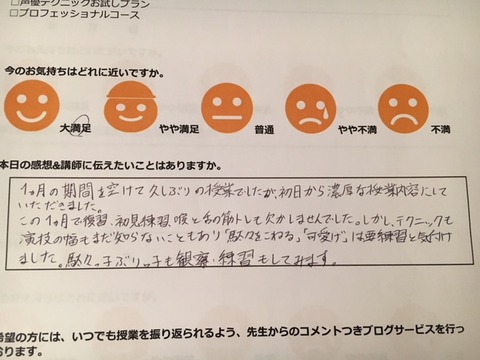 □声優テクニックお試しプラン
□プロフェッショナルコース
今のお気持ちはどれに近いですか。
大満足 やや満足 普通 やや不満 不満
本日の感想&講師に伝えたいことはありますか。
1ヶ月の期間を空けて久しぶりの授業でしたが、初日から濃厚な授業内容にして
いただきました。
この1ヶ月で復習・初見練習・喉と舌の筋トレも欠かしませんでした。しかし、テクニックも
演技の幅もまだ知らないこともあり「駄々をこねる」「可愛げ」は要練習と気付け
ました。駄々っ子ぶりっ子も観察・練習もしてみます。
希望の方には、いつでも授業を振り返られるよう、先生からのコメントつきブログサービスを行っ
おります。